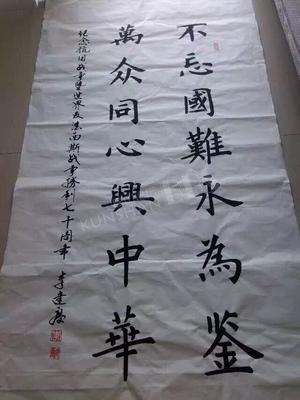 不忘國難永為鉴
萬众同心興中華
纪念抗日战争暨世界反法西斯战争勝利七十周年 李建慶